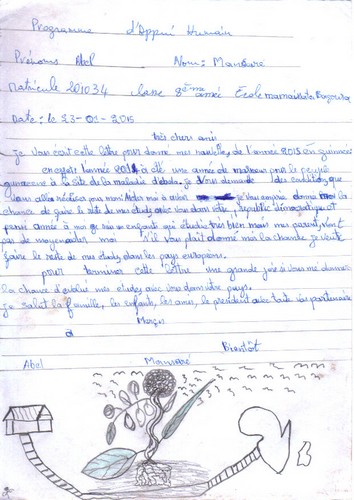 Programme d'Appui Humain
Prénoms Abel Nom: Mansaré
Matricule 201034 classe 8ème année École
Date: le 23-01-2015
très chers ami
je vous écrit cette lettre pour donné mes nouvelles de l'année 2015 en guinnée
l'année 2014 à été une année de malheur pour le peuple
guinnéens à la site de la maladie d'ebola. je vous demande des conditions que
vous allez pour moi à avoir je vous donné moi la
chance de faire le reste de mes étude avec vous dans votre république démocratique et
moi je suis un enfant qui étudie très bien mais mes parents n'ont
pas de moyen moi s'il vous plait donné moi la chance je veux
faire le reste de mes étude dans les pays européens.
pour terminer cette lettre une grande joie à vous me donner
la chance d'évolué mes études avec vous dans votre pays.
je salut la famille, les enfants, les amis, le président avec toute vos partenaire
Merçi
à Bientôt
Abel Mansaré